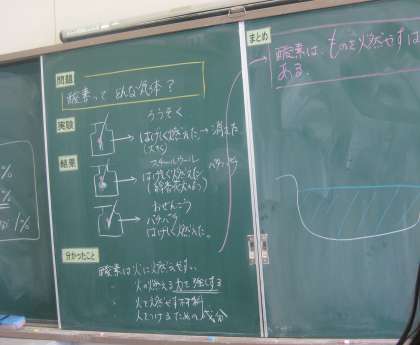 問題
酸素って どんな気体？
実験
ろうそく
はげしく燃えた → 消えた
(大きく)
結果
スチールウール
はげしく燃えた
パチパチ
(線香花火
おせんこう
パチパチ
はげしく燃えた。
分かったこと
酸素は火に燃えやすい。
・火の燃える力を強くする
・火を燃やす材料
・火をつけるための成分
まとめ
酸素は、ものを燃やすは
ある。
%
%
1%